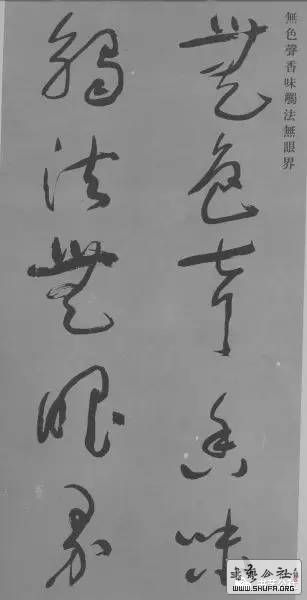 無色聲香味觸法無眼界
無色聲香味
觸法無眼界
書藝公社
WWW.SHUFA.ORG